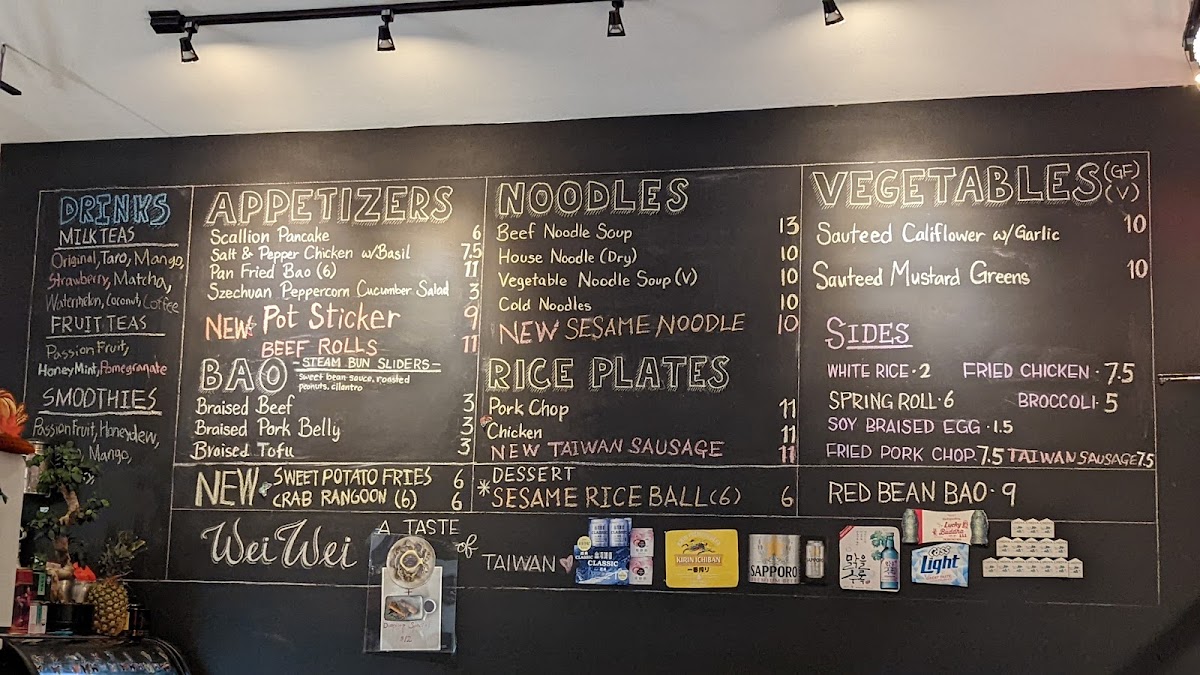 DRINKS
MILK TEAS
Original, Taro, Mango,
Strawberry, Matcha,
Watermelon, Coconut, Coffee
FRUIT TEAS
Passion Fruit,
Honey Mint, Pomegranate
SMOOTHIES
Passion Fruit, Honeydew,
Mango,
APPETIZERS
Scallion Pancake 6
Salt & Pepper Chicken w/Basil 7.5
Pan Fried Bao (6) 11
Szechuan Peppercorn Cucumber Salad 3
NEW Pot Sticker 9
BEEF ROLLS 11
BAO -STEAM BUN SLIDERS-
Sweet bean sauce, roasted
peanuts, cilantro
Braised Beef 3
Braised Pork Belly 3
Braised Tofu 3
NEW SWEET POTATO FRIES 6
CRAB RANGOON (6) 6
NOODLES
Beef Noodle Soup 13
House Noodle (Dry) 10
Vegetable Noodle Soup (V) 10
Cold Noodles 10
NEW SESAME NOODLE 10
RICE PLATES
Pork Chop 11
Chicken 11
NEW TAIWAN SAUSAGE 11
DESSERT
*SESAME RICE BALL (6) 6
VEGETABLES (GF) (V)
Sauteed Califlower w/Garlic 10
Sauteed Mustard Greens 10
SIDES
WHITE RICE · 2 FRIED CHICKEN · 7.5
SPRING ROLL · 6 BROCCOLI · 5
SOY BRAISED EGG · 1.5
FRIED PORK CHOP · 7.5 TAIWAN SAUSAGE 7.5
RED BEAN BAO · 9
Wei Wei A TASTE of TAIWAN
CLASSIC
CLASSIC
KIRIN ICHIBAN
一番搾り
SAPPORO
Lucky
Buddha
CASS
Light